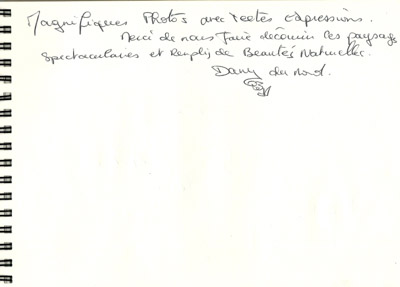 Magnifiques Photos avec textes expressions.
Merci de nous faire découvrir les paysages
Spectaculaires et Remplis de Beautés Naturelles.
Dany du nord.